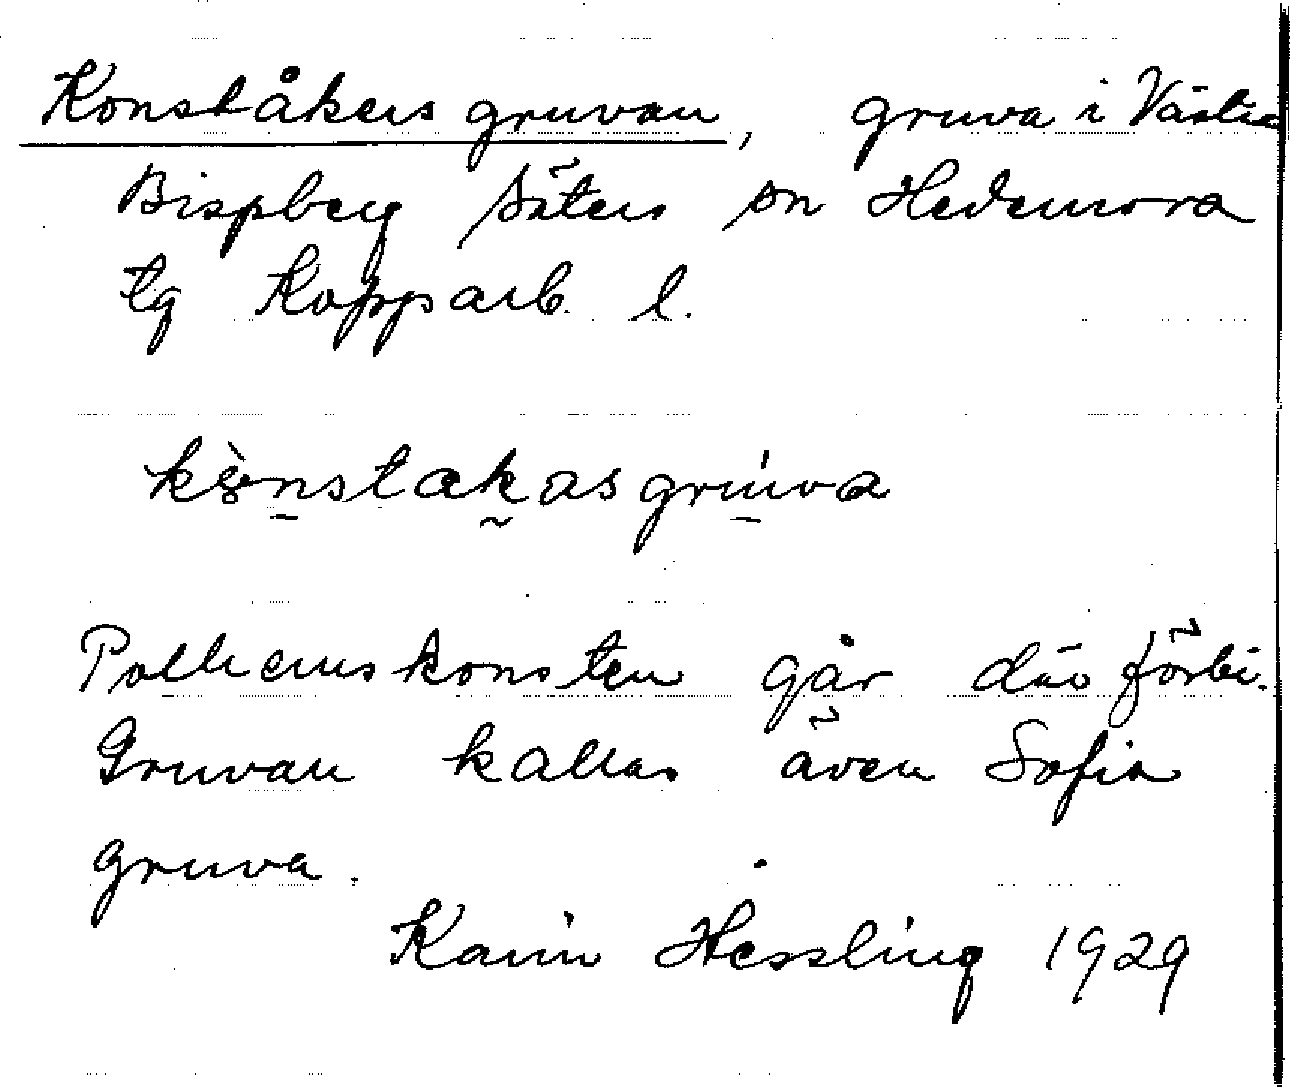 Konståkersgruvan, gruva i Västra
Bispberg Säters sn Hedemora
tg Kopparb. l.
kònstakasgruva
Polhemskonsten går där förbi.
Gruvan kallas även Sofia
gruva.
Karin Hessling 1929